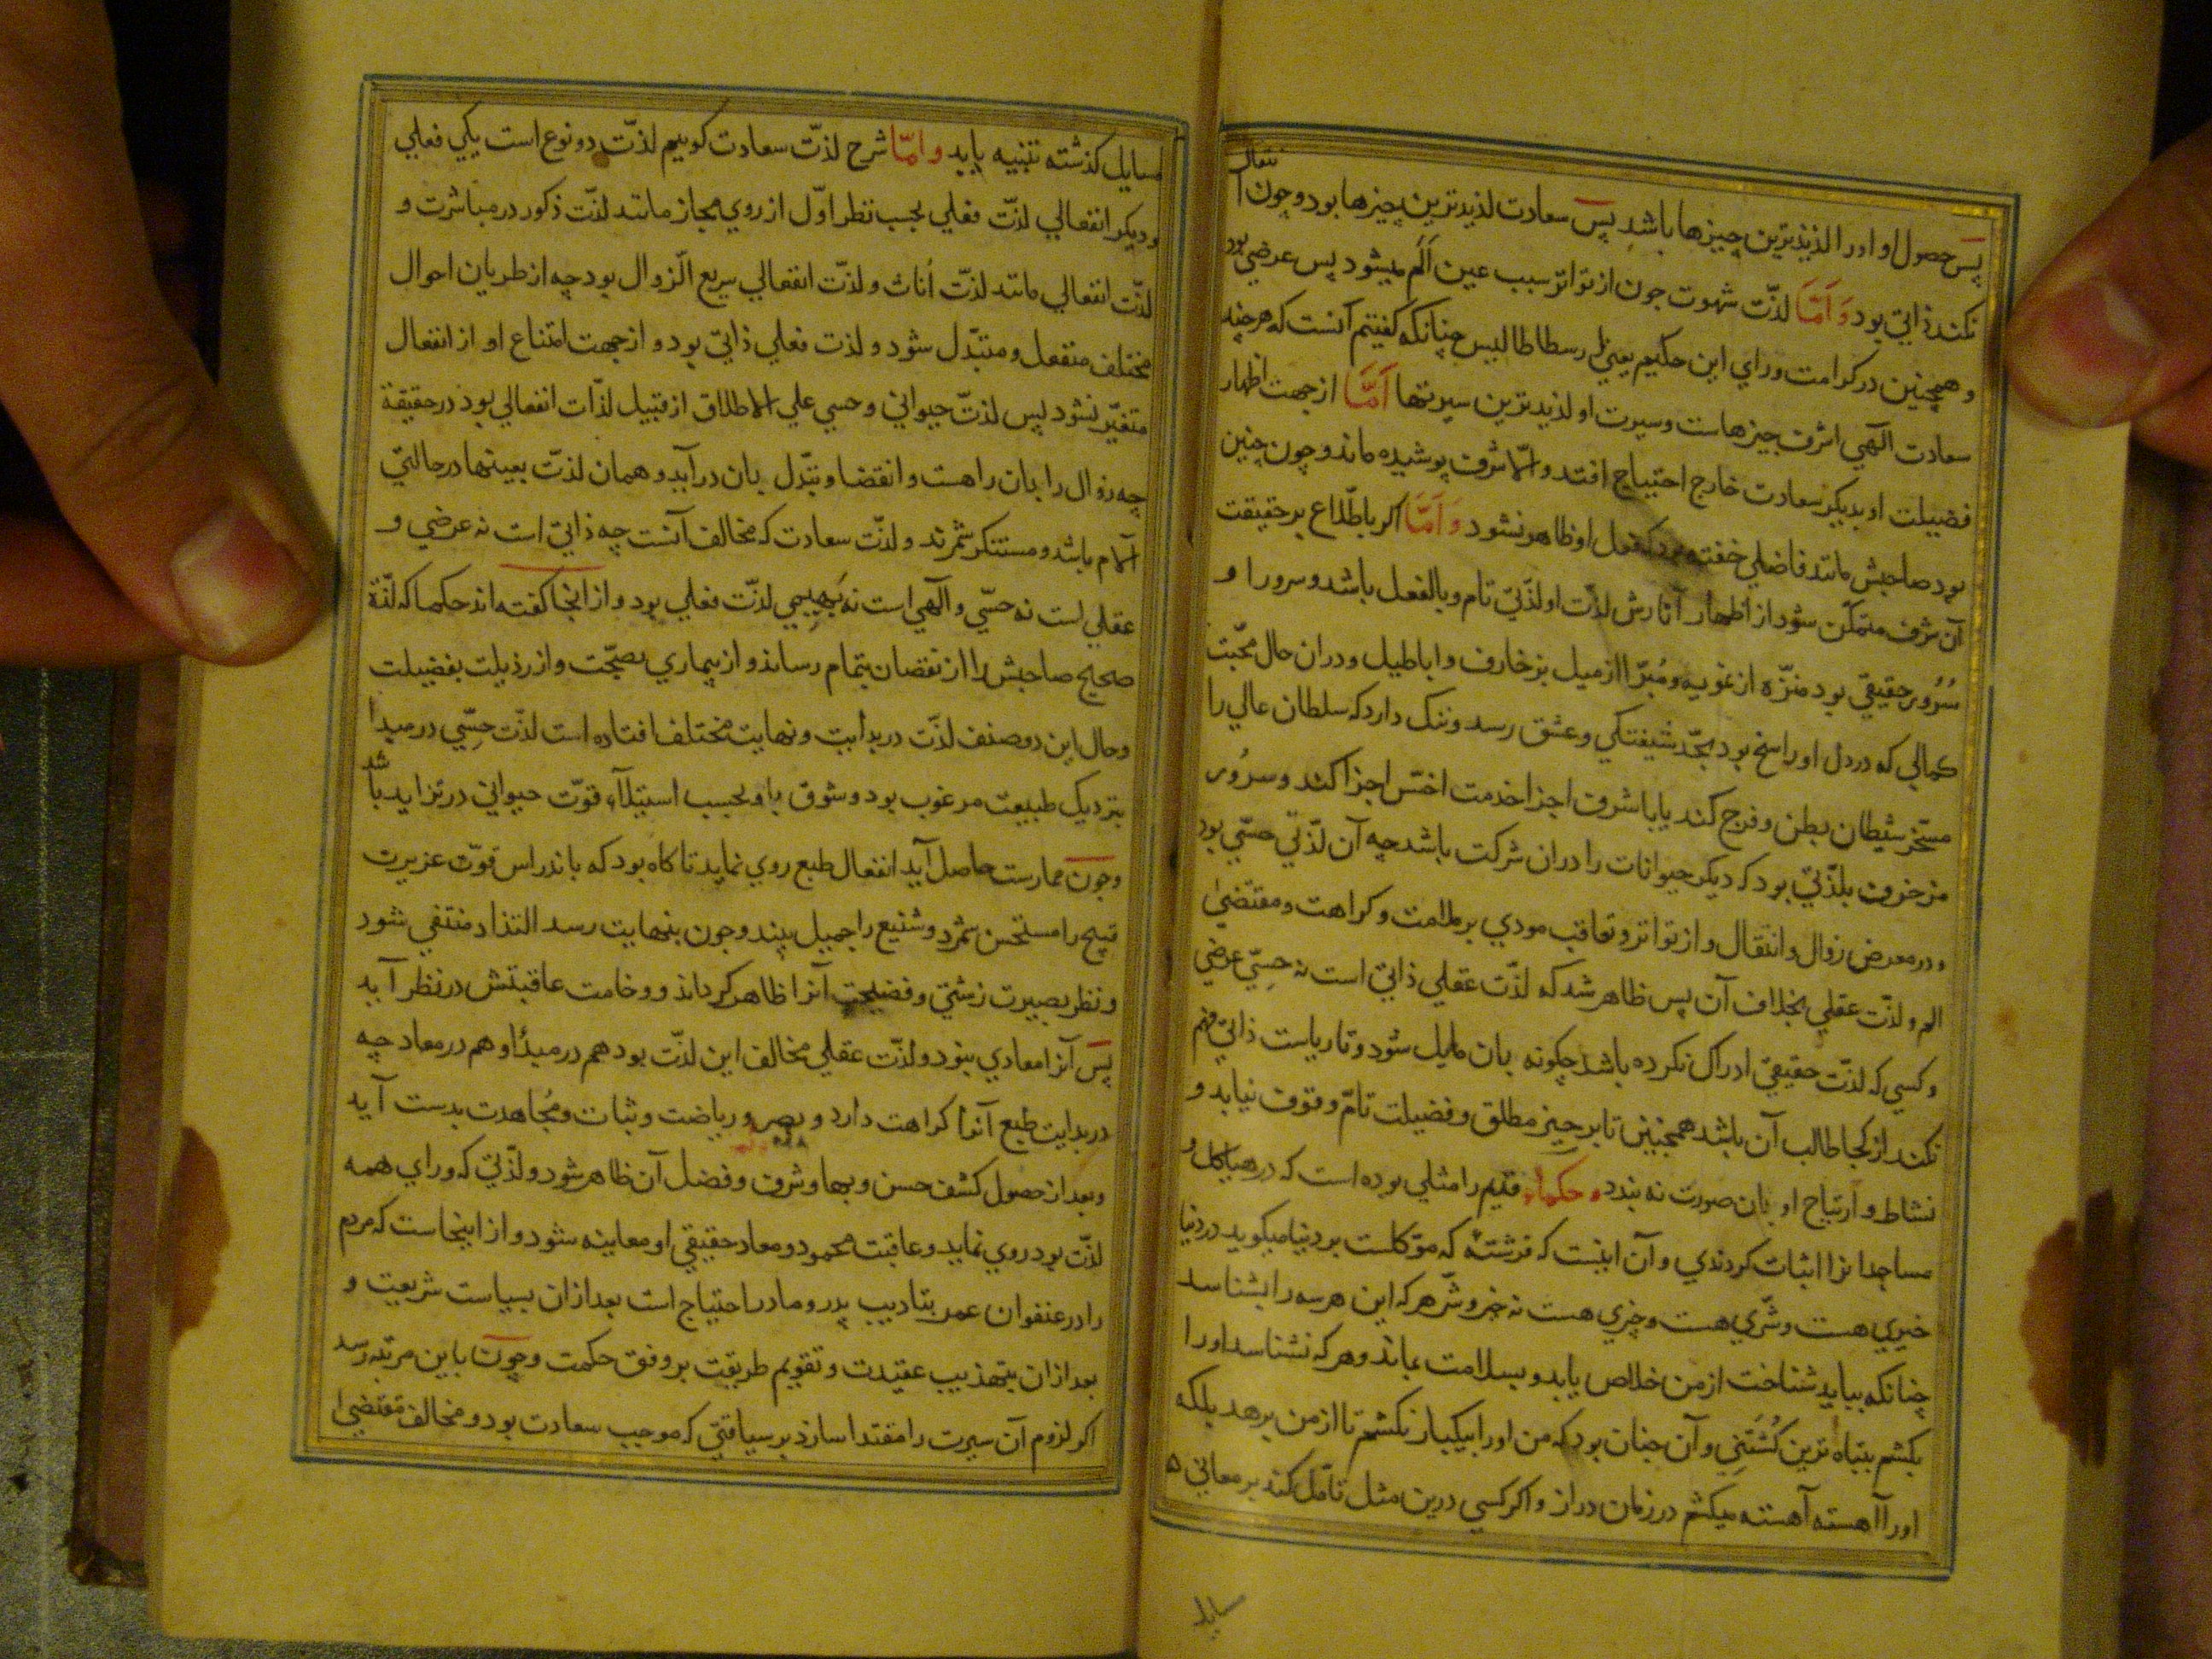 پس حصول او اورا لذیذترین چیزها باشد پس سعادت لذیذترین چیزها بود و چون انتقال
نکند ذاتی بود وَ اَمَّا لذّت شهوت چون از تواتر سبب عین اَلَم میشود پس عرضی بود
و همچنین در کرامت و رای این حکیم یعنی ارسطاطالیس چنانکه کفتیم آنست که هرچند
سعادت آلهی اشرف چیزهاست و سیرت او لذیذترین سیرتها اَمَّا از جهت اظهار
فضیلت او بدیکر سعادت خارج احتیاج افتد و الّا شرف پوشیده ماند و چون چنین
بود صاحبش مانند فاضلی خفته بود که فعل او ظاهر نشود وَ اَمَّا اکر باطّلاع بر حقیقت
آن شرف متمکّن شود از اظهار آثارش لذّت او لذّتی تام و بالفعل باشد و سرور او
سُرُور حقیقی بود منزّه از تمویه و مُبرّا از میل بزخارف و اباطیل و دران حال محبّت
کمالی که در دل او راسخ بود بحدّ شیفتکی و عشق رسد و ننک دارد که سلطان عالی را
مسخّر شیطان بطن و فرج کند یا باشرف اجزا خدمت اخسّ اجزا کند و سرُور
مزخرف بلذّتی بود که دیکر حیوانات را دران شرکت باشد چه آن لذّتی حسّی بود
و در معرض زوال و انتقال و از تواتر و تعاقب مودی بر ملامت و کراهت و مقتضی
الم و لذّت عقلی بخلاف آن پس ظاهر شد که لذّت عقلی ذاتی است نه حِسّی عرضی
و کسی که لذّت حقیقی ادراک نکرده باشد چکونه بان مایل شود و تا ریاست ذاتی فهم
نکند از کجا طالب آن باشد همچنین تا بر خیر مطلق و فضیلت تامّ وقوف نیابد و
نشاط و ارتیاح او بان صورت نه بندد و حکماء قدیم را مثلی بوده است که در هیاکل و
مساجد انرا اثبات کردندی و آن اینست که فرشتهٔ که موکلست بر دنیا میکوید در دنیا
خیری هست و شّری هست و چیزی هست نه خیر و شّر هر که این هر سه را بشناسد
چنانکه بباید شناخت از من خلاص یابد و بسلامت بماند و هر که نشناسد او را
بکشم بتباه ترین کُشتَنی و آن چنان بود که من او را بیکبار نکشم تا از من برهد بلکه
او را آهسته آهسته میکشم در زمان دراز و اکر کسی درین مثل تأمّل کند بر معانی
مسایل کذشته تنبیه یابد و امّا شرح لذّت سعادت کوییم لذّت دو نوع است یکی فعلی
و دیکر انفعالی لذّت فعلی بحسب نظر اوّل از روی مجاز مانند لذّت ذکور در مباشرت و
لذّت انفعالی مانند لذّت اُناث و لذّت انفعالی سریع الّزوال بود چه از طریان احوال
مختلف منفعل و متبّدل شود و لذت فعلی ذاتی بود و از جهت امتناع او از انفعال
متغیّر نشود پس لذتّ حیوانی و حسی علی الاطلاق از قبیل لذّات انفعالی بود در حقیقة
چه زوال را بان راهست و انقضا و تبّدل بان درآید و همان لذتّ بعینها در حالتی
آلام باشد و مستنکر شمرند و لذّت سعادت که مخالف آنست چه ذاتی است نه عرضی و
عقلی است نه حسّی و آلهی است نه بَهیمی لذتّ فعلی بود و از اینجا کفته اند حکما که لذّة
صحیح صاحبش را از نقصان بتمام رساند و از بیماری بصحّت و از رذیلت بفضیلت
و حال این دو صنف لذّت در بدایت و نهایت مختلف افتاده است لذّت حِسّی در مبدا
بنزدیک طبیعت مرغوب بود و شوق باو بحسب استیلآء قوّت حیوانی در تزاید باشد
و چون ممارست حاصل آید انفعال طبع روی نماید تا کاه بود که باندراس قوّت عزیرت
قبیح را مستحسن شمرد و شنیع را جمیل بیند و چون بنهایت رسد التذاد منتفی شود
و نظر بصیرت زشتی و فضیحت آنرا ظاهر کرداند و وخامت عاقبتش در نظر آید
پس آنرا معادی نبود و لذّت عقلی مخالف این لذّت بود هم در مبدٔا و هم در معاد چه
در بدایت طبع آنرا کراهت دارد و بصبر و ریاضت و ثبات و مُجاهدت بدست آید
و بعد از حصول کشف حسن و بها و شرف و فضل آن ظاهر شود و لذّتی که ورای همه
لذّت بود روی نماید و عاقبت محمود و معاد حقیقی او معاینه شود و از اینجاست که مردم
را در عنفوان عمر بتادیب پدر و مادر احتیاج است بعد ازان بسیاست شریعت و
بعد ازان بتهذیب عقیدت و تقویم طریقت بر وفق حکمت و چون باین مرتبه رسد
اکر لزوم آن سیرت را مقتدا سازد بر سیاقتی که موجب سعادت بود و مخالف مقتضی